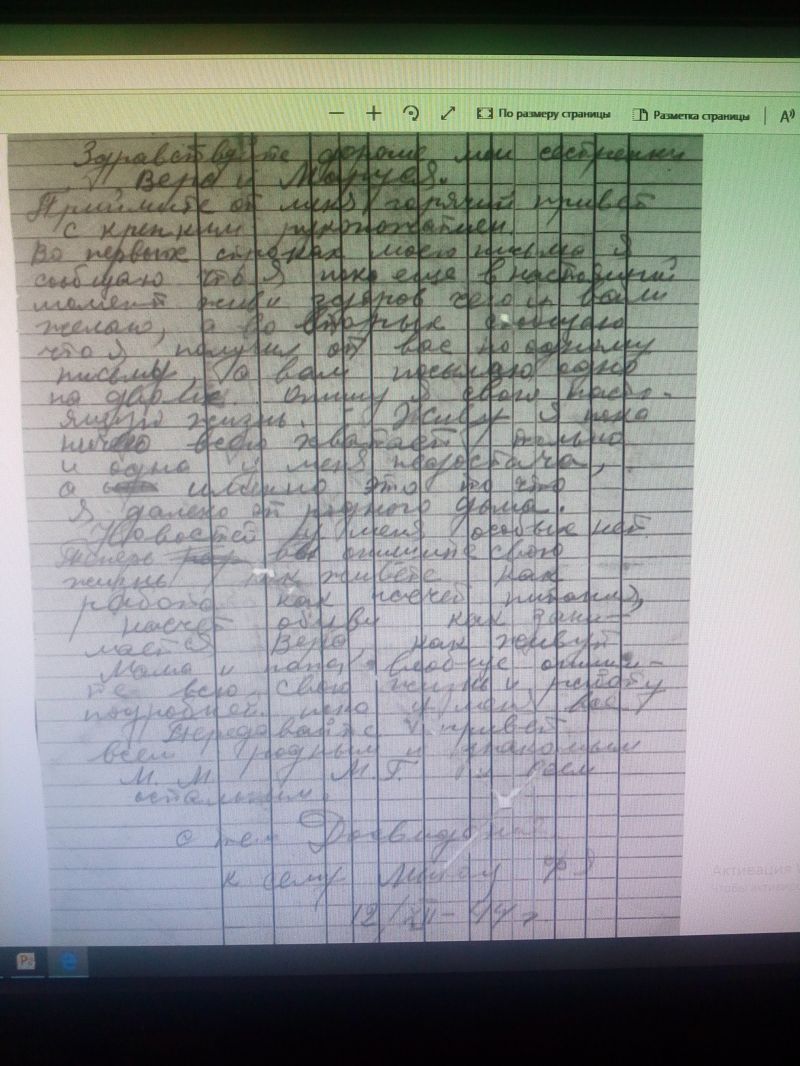 По размеру страницы
Разметка страницы
Здравствуйте дорогие мои сестренки
Вера и Маруся.
Примите от меня горячий привет
с крепким рукопожатием.
Во первых строках моего письма я
сообщаю что я пока еще в настоящий
момент жив и здоров чего и вам
желаю, а во вторых сообщаю
что я получил от вас по одному
письму, а вам посылаю одно
на Опишу я свою насто-
ящую жизнь. Живу я пока
ничего всего хватает только
и одна у меня недостача,
а именно это то что
я далеко от родного дома.
Новостей у меня особых нет.
Теперь вы опишите свою
жизнь, как живете как
работа как насчет питания,
насчет обуви как зани-
мается Вера, как живут
Мама и папа вообще опиши-
те всю свою жизнь и работу
подробней. пока у меня все
Передавайте привет
всем родным и знакомым
М. М. М. Г. и всем
остальным.
с тем Досвидания
к сему
12/XII-44 г
Активация